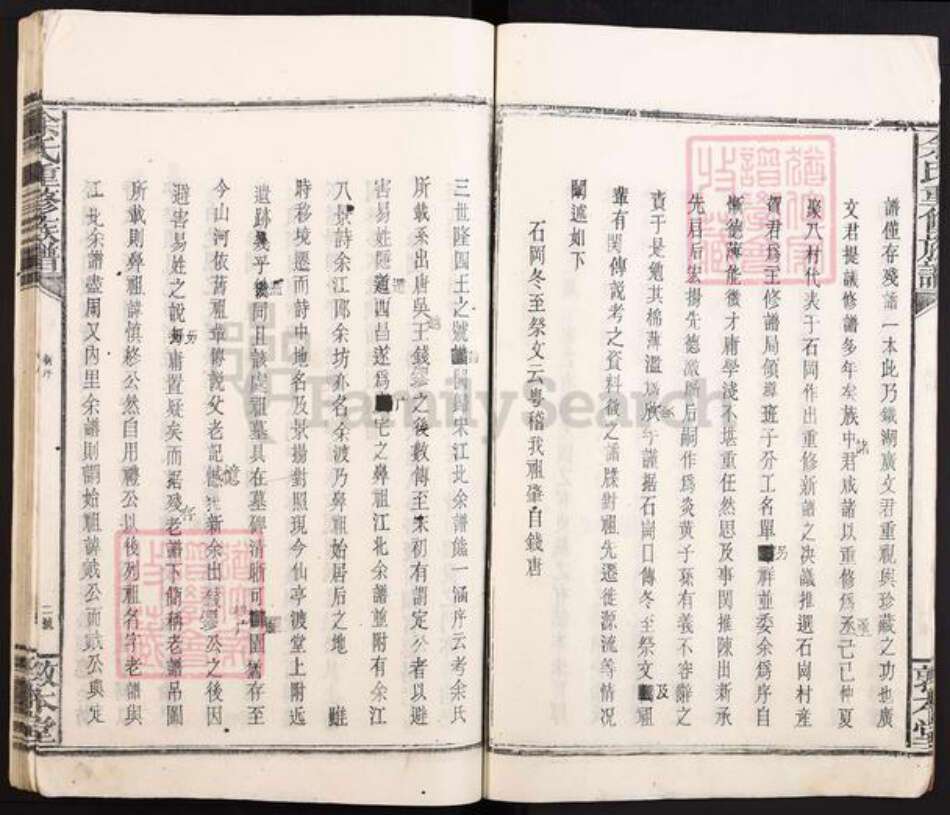 余氏重修族譜
譜僅存殘譜一本此乃鐵湖廣文君重視與珍藏之功也廣
文君提議修譜多年矣族中君成諸以重修為丞己巳仲夏
聚八村代表于石岡作出重修新譜之决議推選石岡村產
賀君為主修譜局領導班子分工名單另群並委余為序自
慚德薄能微才庸學淺不堪重任然思及事関推陳出新承
先启后宏揚先德激励后嗣作為炎黃子孫有義不容辭之
責于是勉其棉薄濫為族乎謹据石岡口傳冬至祭文及祖
輩有関傳説考之資料徵之譜牒對祖先遷徙源流等情况
闡述如下
石岡冬至祭文云粤稽我祖肇自錢唐
敦本堂
三世隆四王之號 宋江北余譜 一涵序云考余氏
所載系出唐吳王錢鏐之後數傳至宋初有謂定公者以避
害易姓 遁四昌遂為廣宅之鼻祖江北余譜並附有余江
八景詩余江即余坊亦名余渡乃鼻祖始居后之地 雖
時移境遷而詩中地名及景揚對照現今仙亭渡堂上附近
遺跡幾乎 同且該處祖墓具在墓碑清晰可 圖猶存至
今山河依舊祖輩傳說父老記憶 新余出錢鏐公之後因
避害易姓之說另庸置疑矣而据殘存老譜下簡稱老譜吊圖
所載則鼻祖諱慎終公然自用禮公以後列祖名字老譜與
江北余譜盡周又内里余譜則謂始祖諱 公而 公與定
余氏重修族譜
二號
敦本堂
FamilySearch